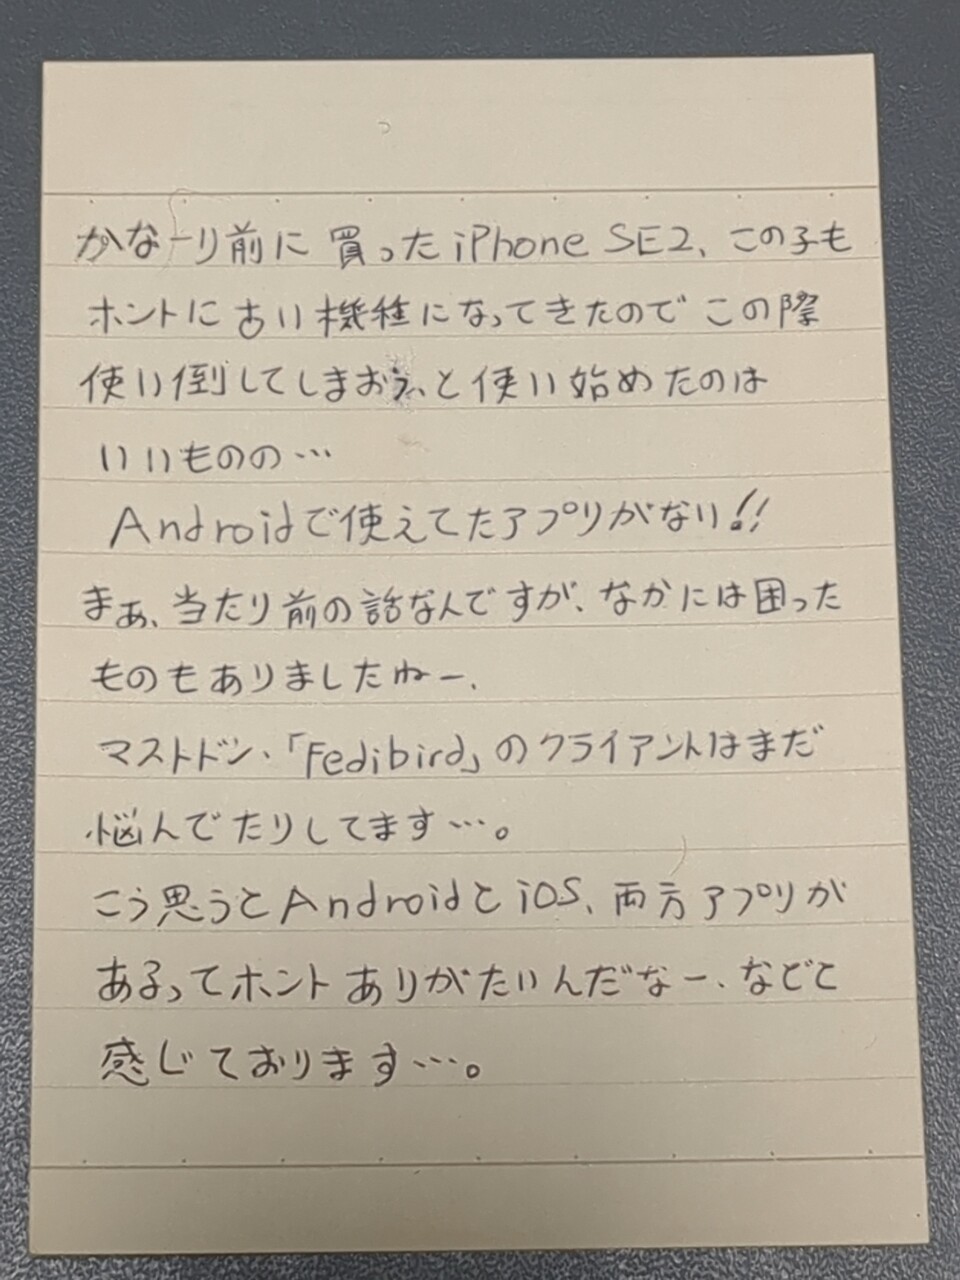 かなーり前に買ったiPhone SE2、この子も
ホントに古い機種になってきたのでこの際
使い倒してしまおう、と使い始めたのは
いいものの…
Androidで使えてたアプリがない!!
まぁ、当たり前の話なんですが、なかには困った
ものもありましたねー、
マストドン、「Fedibird」のクライアントはまだ
悩んでたりしてます…。
こう思うとAndroidとiOS、両方アプリが
あるってホントありがたいんだなー、などと
感じております…。